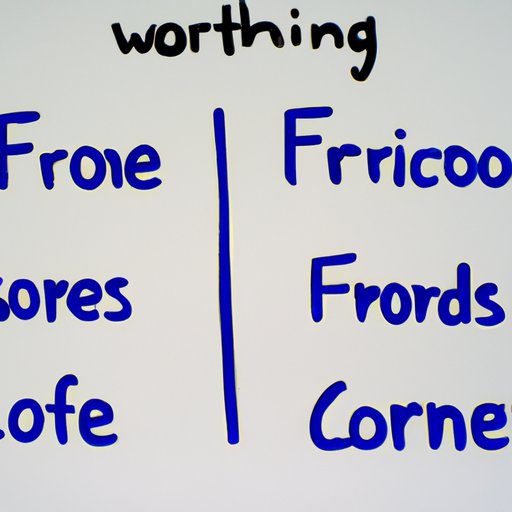 worthing
Frone Frricoo
sores Frords
lofe Corne